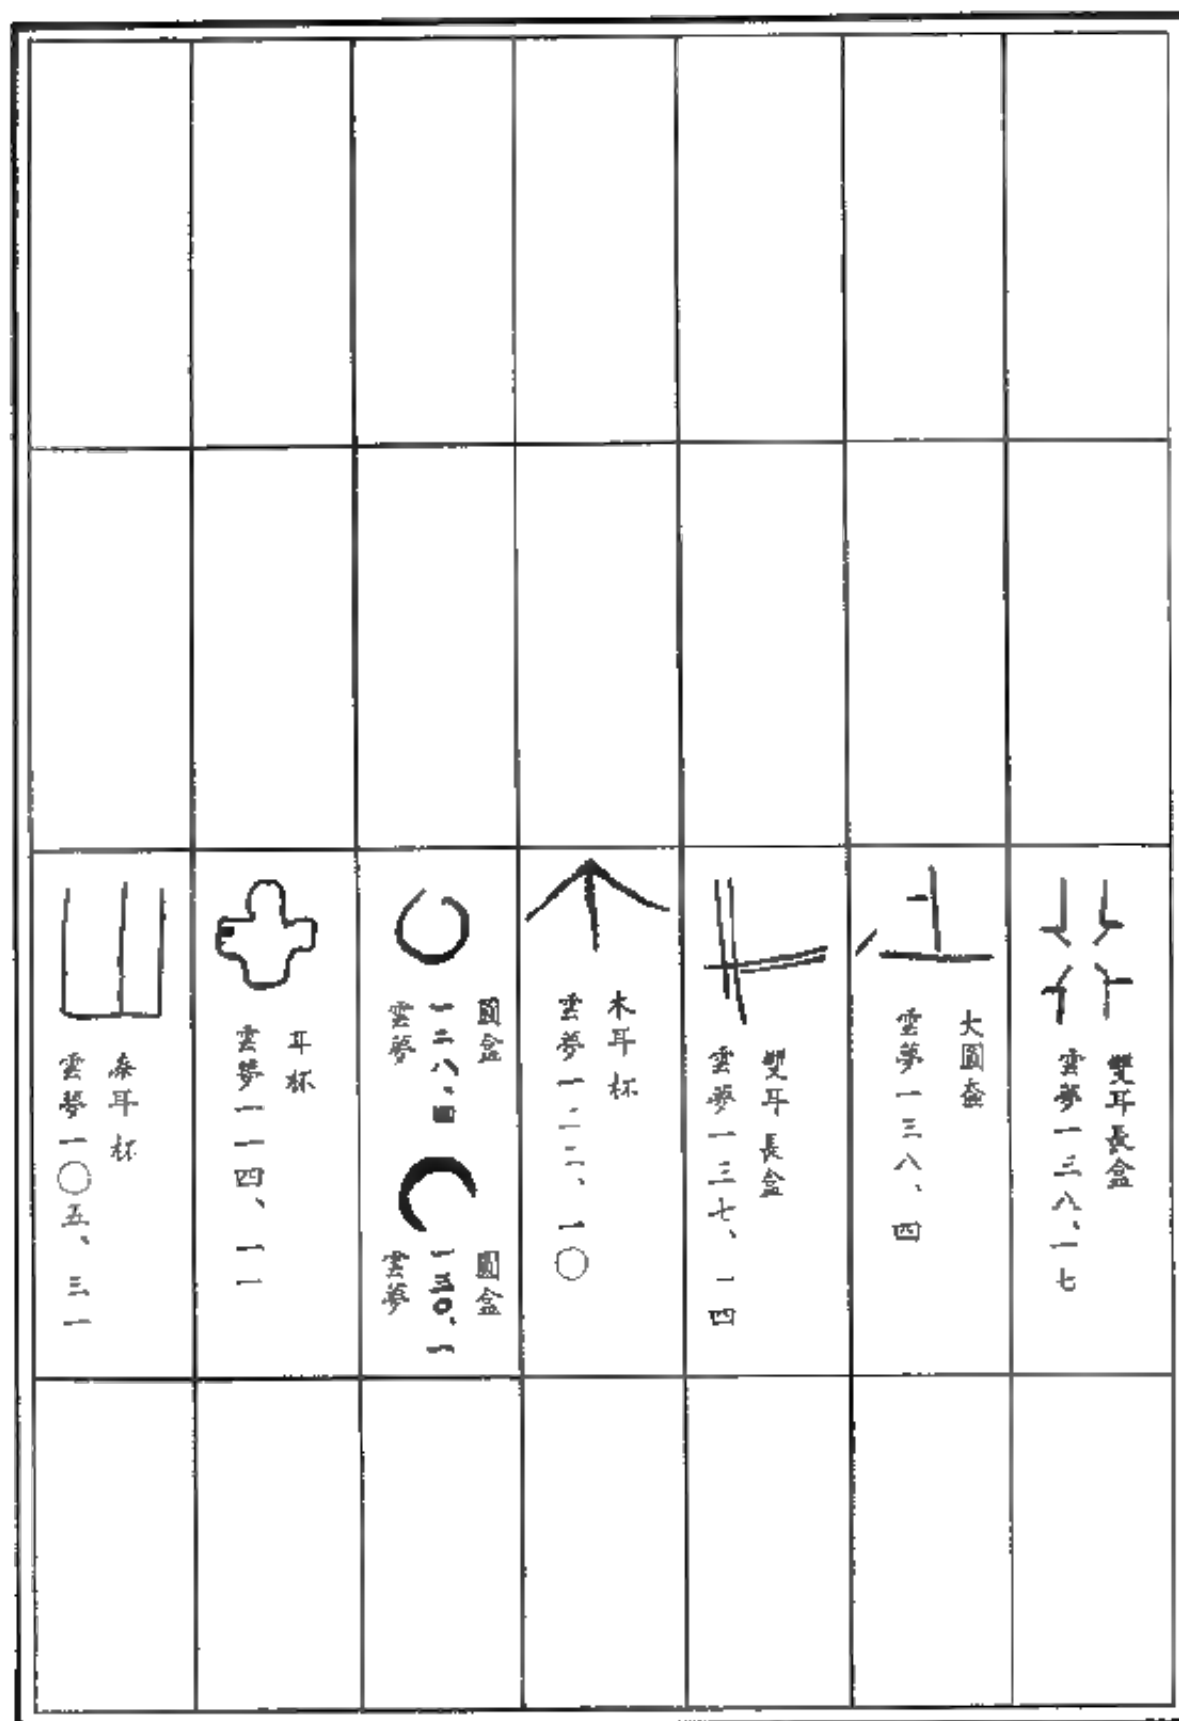 雙耳長盒
雲夢一三八、一七
大圓盒
雲夢一三八、四
雙耳長盒
雲夢一三七、一四
木耳杯
雲夢一二二、一〇
圓盒
雲夢
圓盒
雲夢
耳杯
雲夢一一四、一一
耳杯
雲夢一〇五、三一